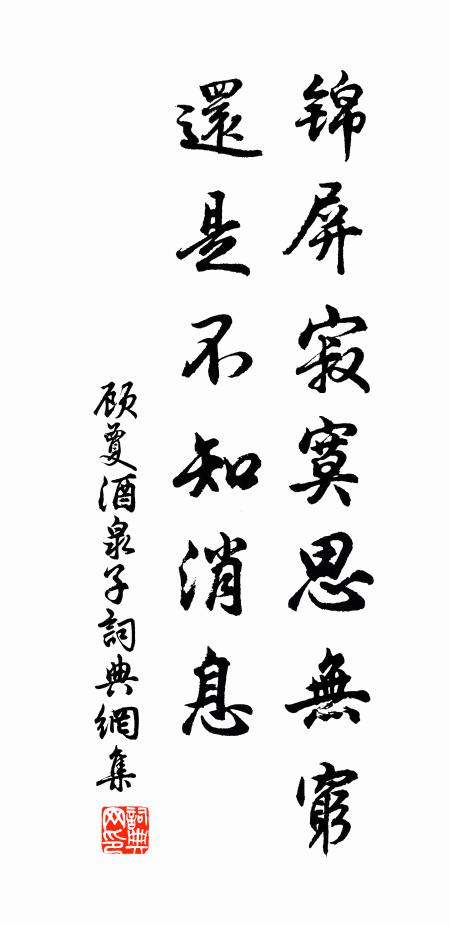 锦屏寂寞思無窮
還是不知消息
顾夐酒泉子詞典網集
詞典网印